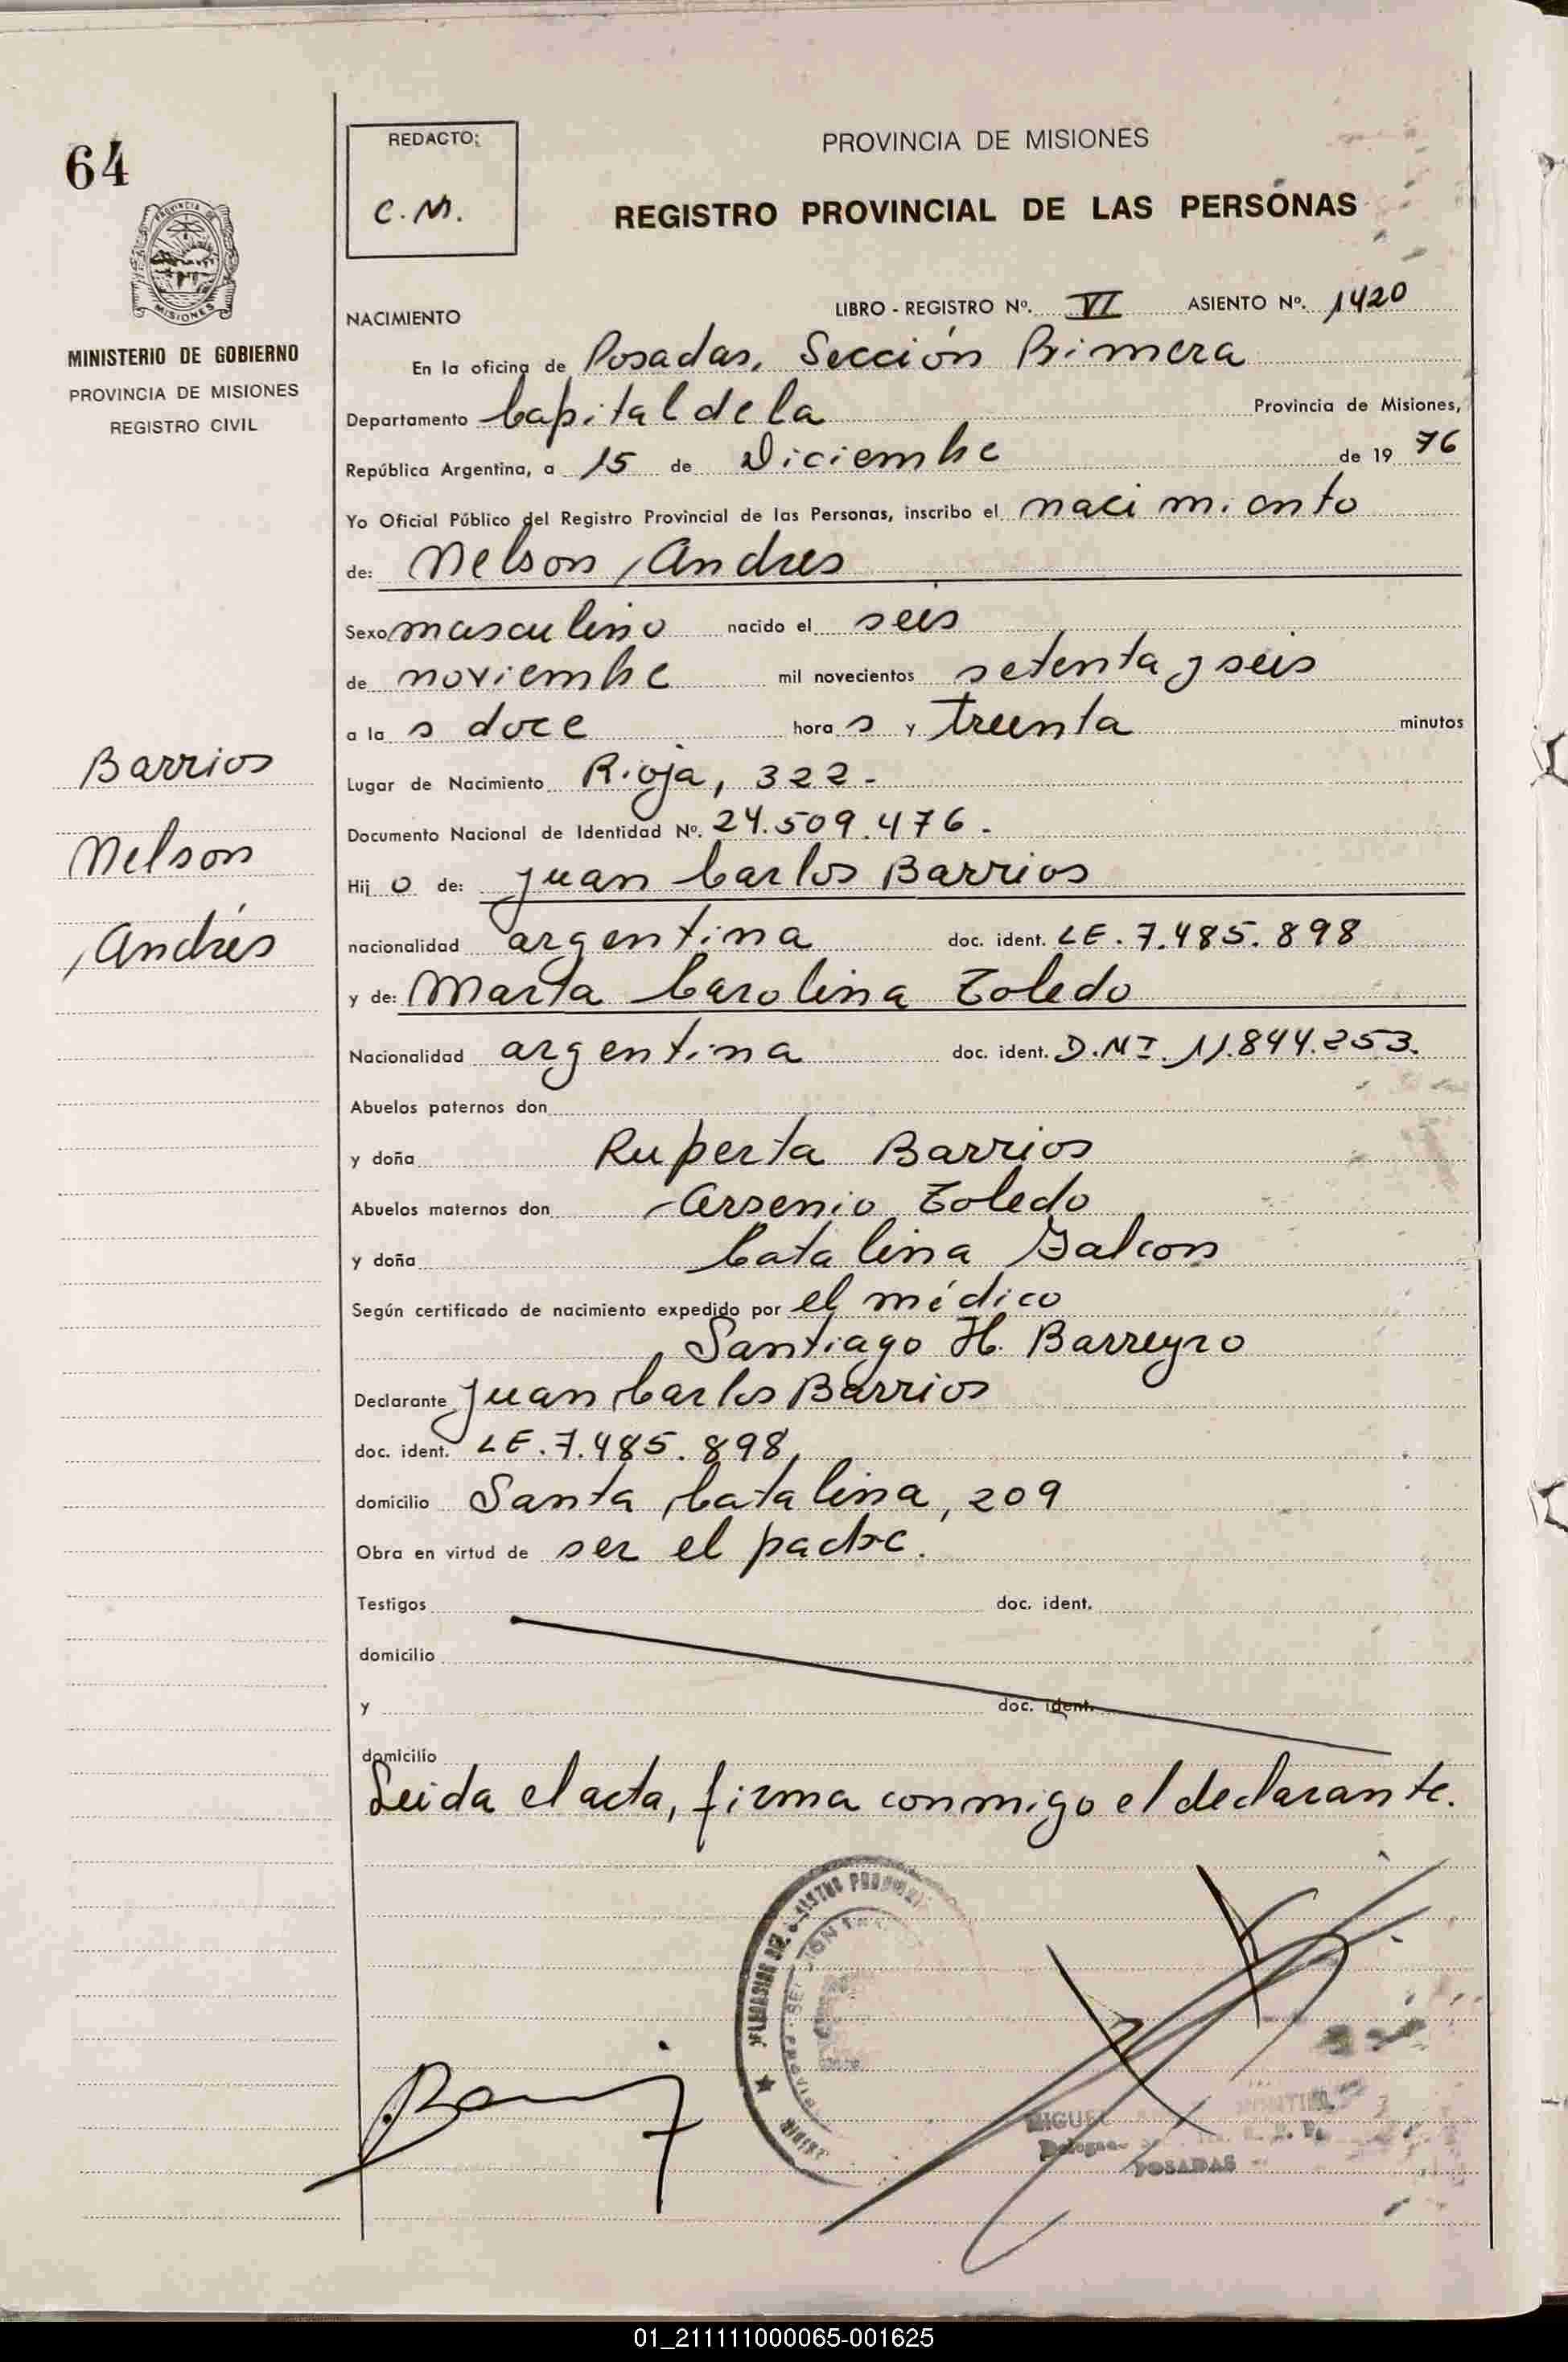 64
PROVINCIA DE MISIONES
MINISTERIO DE GOBIERNO
PROVINCIA DE MISIONES
REGISTRO CIVIL
Barrios
Nelson
Andrés
REDACTO:
C. M.
PROVINCIA DE MISIONES
REGISTRO PROVINCIAL DE LAS PERSONAS
NACIMIENTO LIBRO - REGISTRO Nº. VI ASIENTO Nº. 1420
En la oficina de Posadas, Sección Primera
Departamento Capital de la Provincia de Misiones,
República Argentina, a 15 de Diciembre de 19 76
Yo Oficial Público del Registro Provincial de las Personas, inscribo el nacimiento
de: Nelson Andres
Sexo masculino nacido el seis
de noviembre mil novecientos setenta y seis
a la s doce hora s y treinta minutos
Lugar de Nacimiento Rioja, 322.-
Documento Nacional de Identidad Nº. 24.509.476.-
Hij o de: Juan Carlos Barrios
nacionalidad argentina doc. ident. LE. 7.485.898
y de: Marta Carolina Toledo
Nacionalidad argentina doc. ident. D.N.I. 11.844.253.
Abuelos paternos don
y doña Ruperta Barrios
Abuelos maternos don Arsenio Toledo
y doña Catalina Galcon
Según certificado de nacimiento expedido por el médico
Santiago H. Barreyro
Declarante Juan Carlos Barrios
doc. ident. LE. 7.485.898,
domicilio Santa Catalina, 209
Obra en virtud de ser el padre.
Testigos doc. ident.
domicilio
y doc. ident.
domicilio
Leida el acta, firma conmigo el declarante.
MIGUEL MONTIEL
POSADAS
01_211111000065-001625